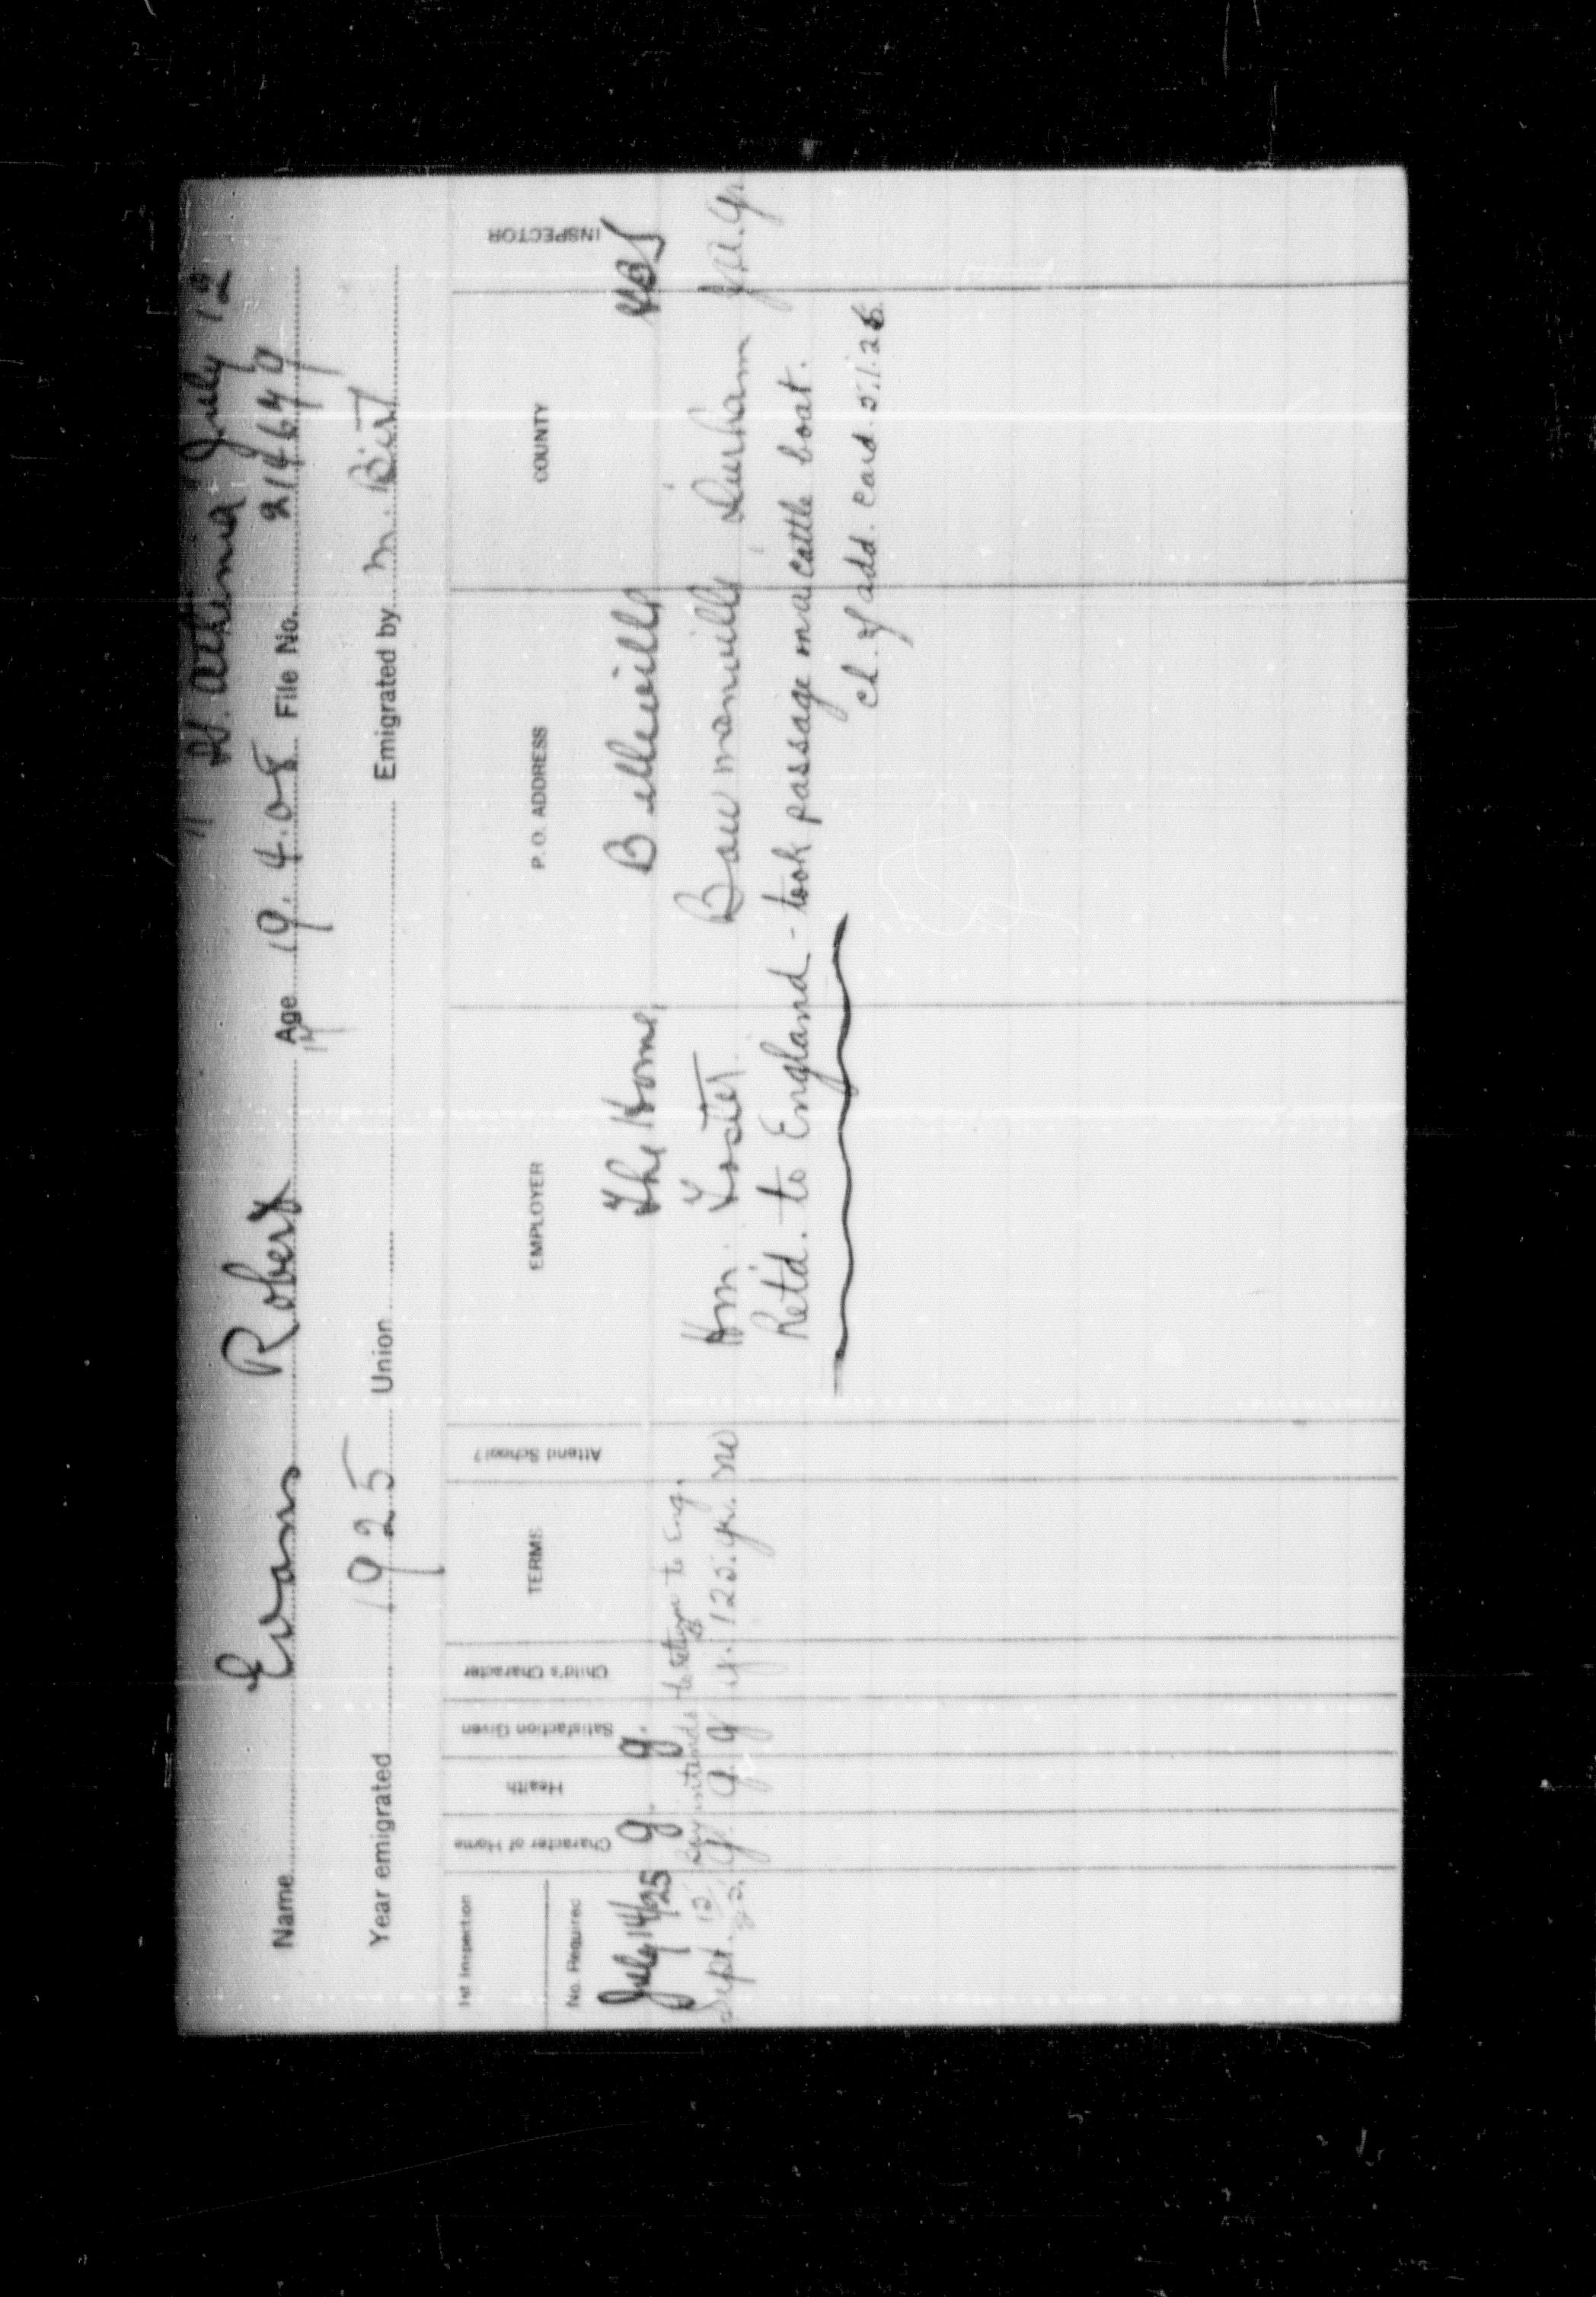 " St. Athena July 12
Name Evans Robert Age 19.4.08 File No. 214649
17
Year emigrated 1925 Union Emigrated by M. Birt
1st Inspection
No. Required
Character of Home
Health
Satisfaction Given
Child's Character
TERMS
Attend School?
EMPLOYER
P. O. ADDRESS
COUNTY
INSPECTOR
July 14/25 g. g. The Home, Belleville HBJ
Boy intends to return to Eng.
Sept. 12 g. g. g g. 125. yr. no Wm. Foster Bowmanville Durham
22.
Retd. to England - took passage on a cattle boat.
Ch. of add. Card. 5.1.26